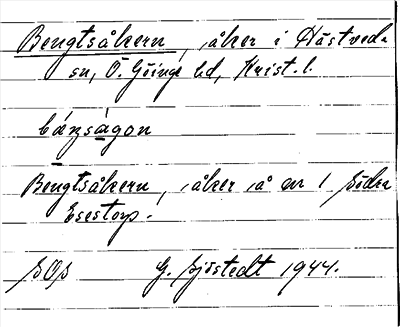 Bengtsåkern, åker i Hästveda
sn, Ö. Göinge hd, Krist. l.
bǽŋsågon
Bengtsåkern, åker å nr 1 Södra
Esestorp.
SOS G. Sjöstedt 1944.